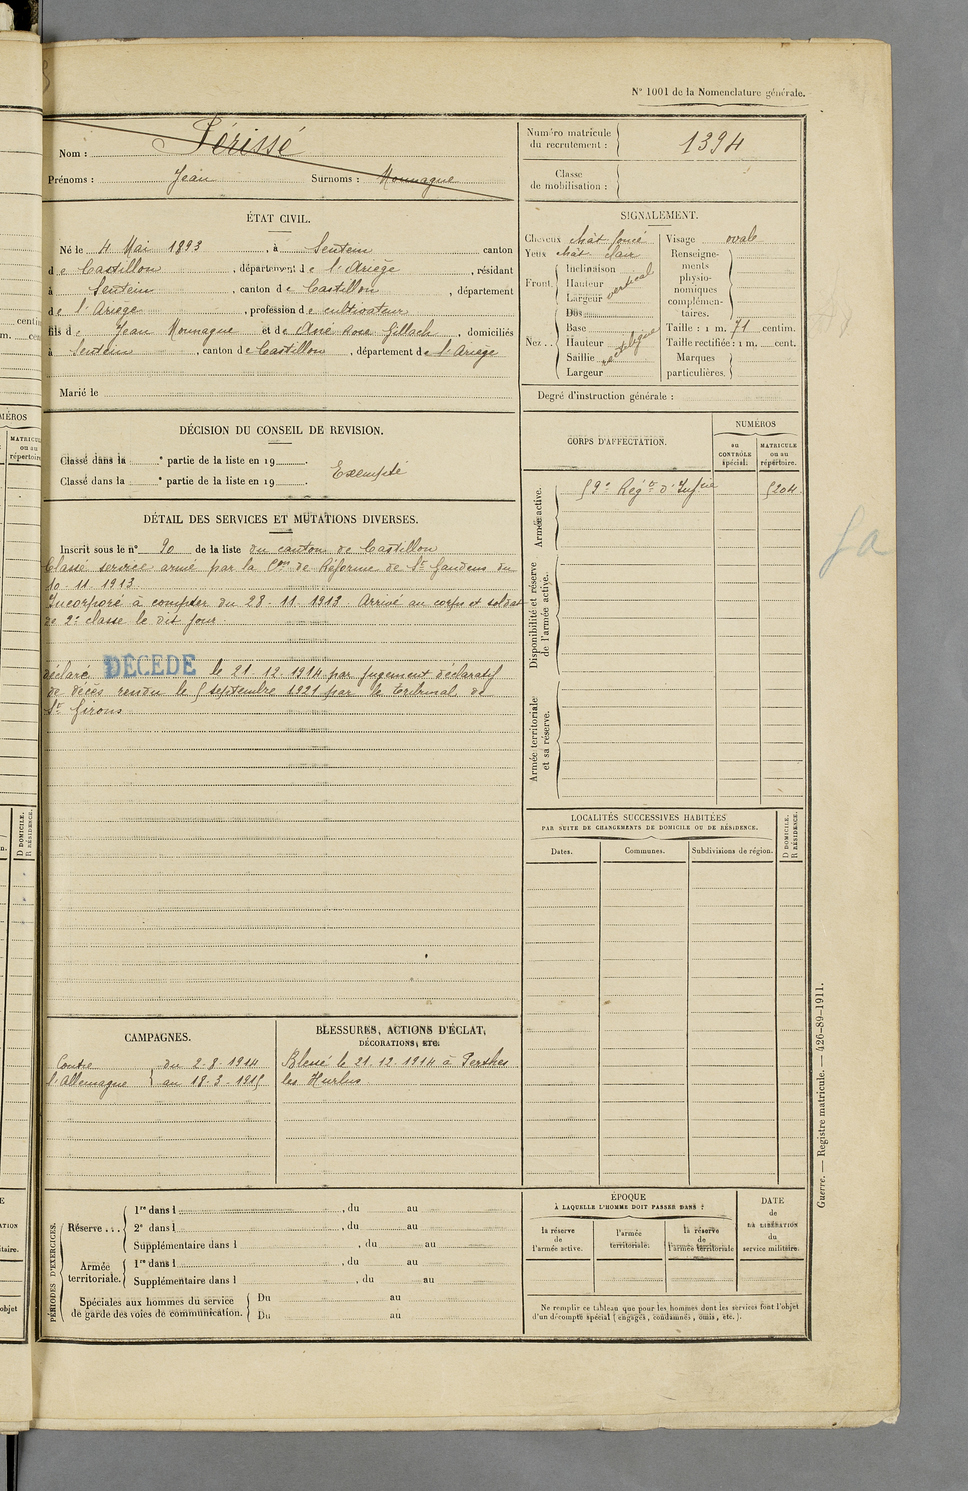 N° 1001 de la Nomenclature générale.
Nom : Périssé
Prénoms : Jean Surnoms : Mounague
Numéro matricule du recrutement : 1394
Classe de mobilisation :
ÉTAT CIVIL.
Né le 4 Mai 1893, à Sentein canton
de Castillon, département de l'Ariège, résidant
à Sentein, canton de Castillon, département
de l'Ariège, profession de cultivateur
fils de Jean Mounague et de Anè Rose Gillach, domiciliés
à Sentein, canton de Castillon, département de l'Ariège
Marié le
SIGNALEMENT.
Cheveux chât foncé
Yeux chât clair
Front. Inclinaison
Hauteur vertical
Largeur
Nez.. Dos
Base
Hauteur rectiligne
Saillie
Largeur
Visage ovale
Renseignements physionomiques complémentaires.
Taille : 1 m. 71 centim.
Taille rectifiée : 1 m. cent.
Marques particulières.
Degré d'instruction générale :
DÉCISION DU CONSEIL DE REVISION.
Classé dans la e partie de la liste en 19 .
Classé dans la e partie de la liste en 19 .
Exempté
CORPS D'AFFECTATION.
NUMÉROS
au CONTRÔLE spécial.
MATRICULE ou au répertoire.
Armée active.
59e Régt d'Infrie 5204
Disponibilité et réserve de l'armée active.
Armée territoriale et sa réserve.
DÉTAIL DES SERVICES ET MUTATIONS DIVERSES.
Inscrit sous le n° 20 de la liste du canton de Castillon
Classé service armé par la Con de Réforme de St Gaudens du
10. 11. 1913
Incorporé à compter du 28. 11. 1913. Arrivé au corps et soldat
de 2e classe le dit jour.
déclaré DÉCÉDÉ le 21. 12. 1914 par jugement déclaratif
de décès rendu le 5 septembre 1921 par le tribunal de
St Girons
LOCALITÉS SUCCESSIVES HABITÉES
PAR SUITE DE CHANGEMENTS DE DOMICILE OU DE RÉSIDENCE.
Dates.
Communes.
Subdivisions de région.
D DOMICILE.
R RÉSIDENCE.
CAMPAGNES.
Contre l'Allemagne } du 2-8-1914
au 18-3-1915
BLESSURES, ACTIONS D'ÉCLAT,
DÉCORATIONS, ETC.
Blessé le 21. 12. 1914 à Perthes
les Hurlus
PÉRIODES D'EXERCICES.
Réserve...
1re dans l , du au
2e dans l , du au
Supplémentaire dans l , du au
Armée territoriale.
1re dans l , du au
Supplémentaire dans l , du au
Spéciales aux hommes du service
de garde des voies de communication.
Du au
Du au
ÉPOQUE
À LAQUELLE L'HOMME DOIT PASSER DANS :
la réserve de l'armée active.
l'armée territoriale.
la réserve de l'armée territoriale
DATE de LA LIBÉRATION du service militaire.
Ne remplir ce tableau que pour les hommes dont les services font l'objet
d'un décompte spécial (engagés, condamnés, omis, etc.).
Guerre. — Registre matricule. — 426-89-1911.